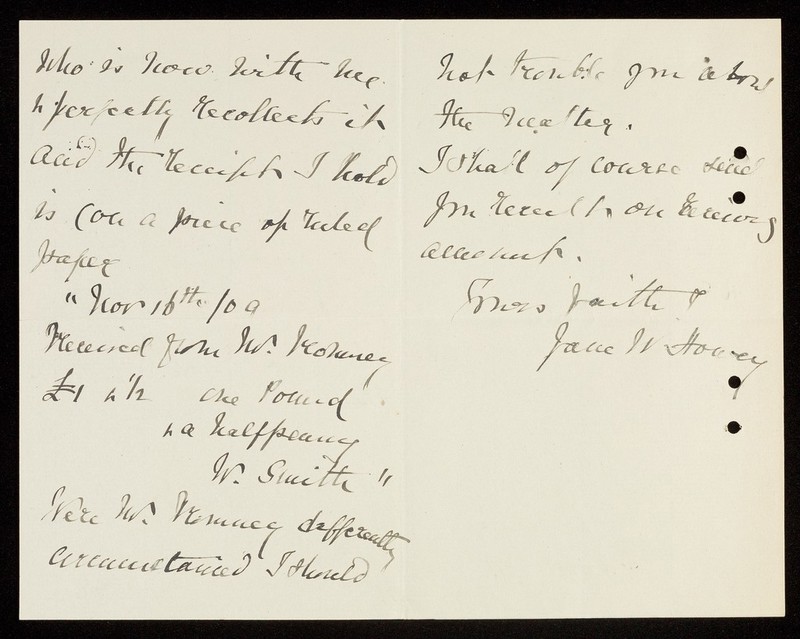 who is now with me
& perfectly recollects it
and the receipt I hold
is (on a piece of ruled
paper
"Nov 16th /09
Received from Mr. Romney
£1 & ½ one Pound
& a halfpenny
W. Smith"
Were Mr. Romney differently
circumstanced I should
not trouble you about
the matter.
I shall of course send
you on
account.
Yours faith
Jane W.